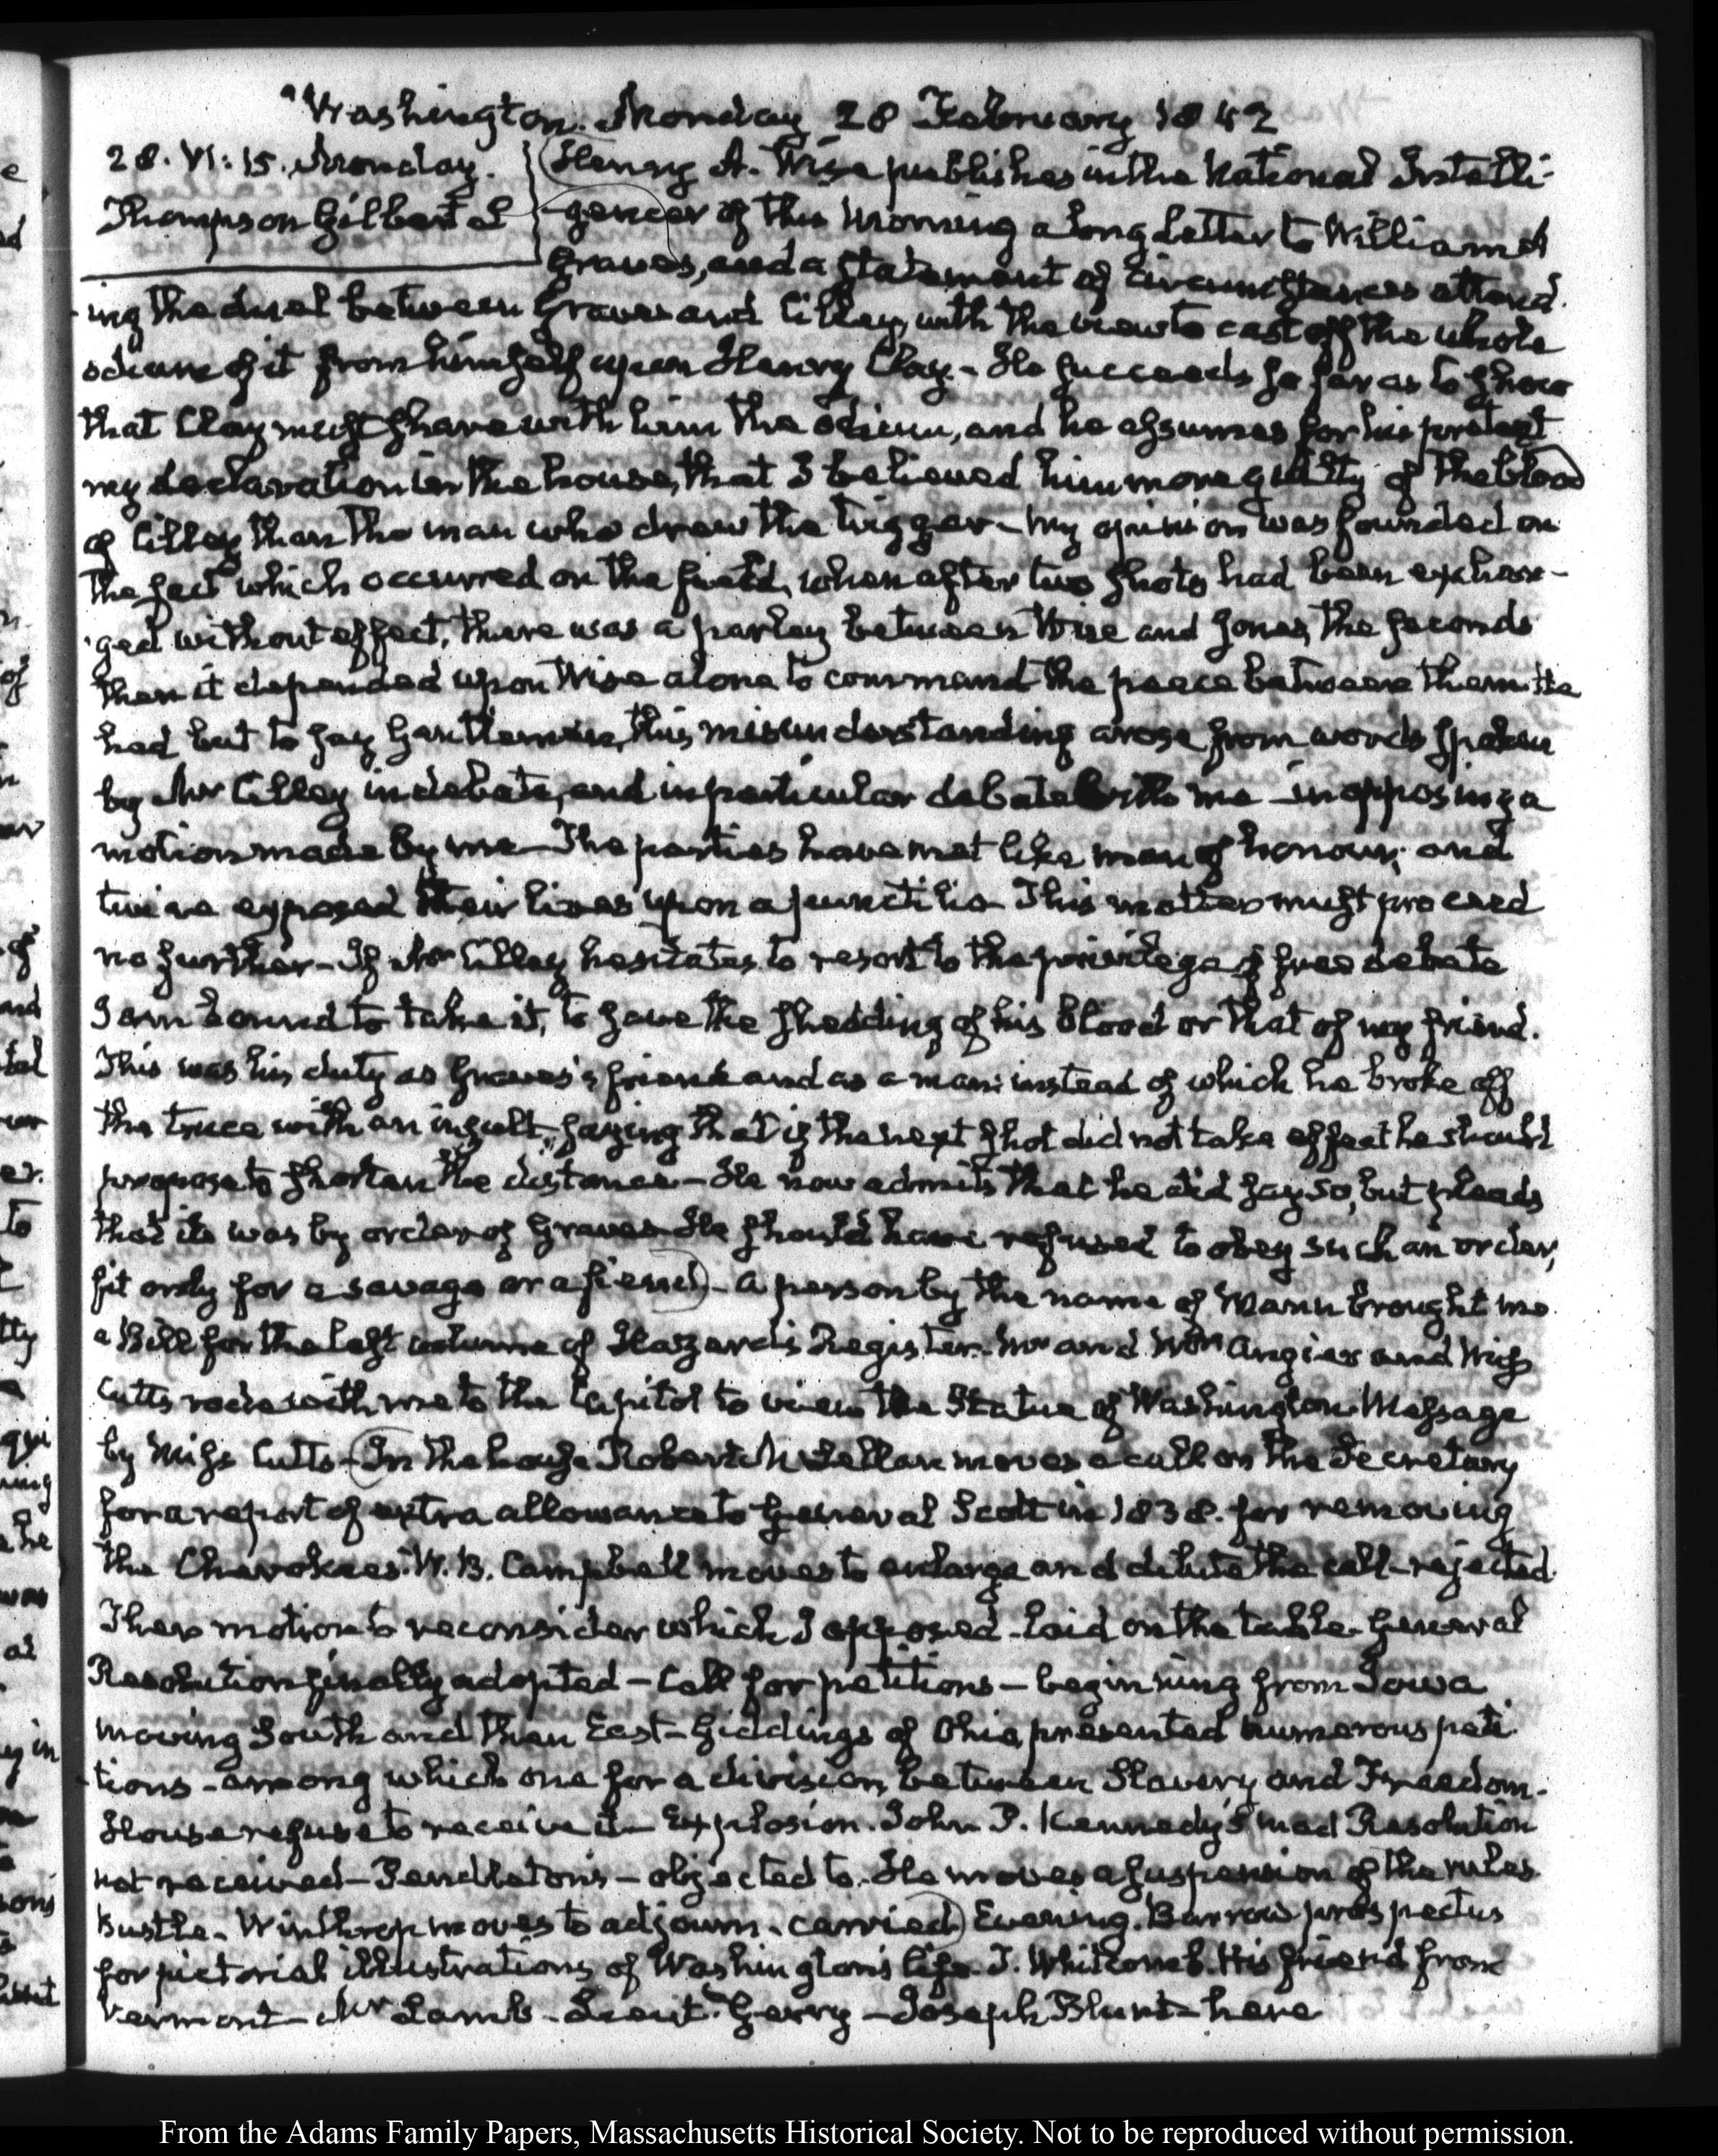 Washington. Monday 28 February 1842
28. VI:15. Monday.
Thompson Gilbert L
Henry A. Wise publishes in the National Intelli-
-gencer of this Morning a long Letter to William J
Graves, and a statement of circumstances attend-
-ing the duel between Graves and Cilley, with the view to cast off the whole
odium of it from himself upon Henry Clay. He succeeds so far as to show
that Clay must share with him the odium, and he assumes for his pretext
my declaration in the house, that I believed him more guilty of the blood
of Cilley than the man who drew the trigger. My opinion was founded on
the fact which occurred on the field, when after two shots had been exchan-
-ged without effect, there was a parley between Wise and Jones, the seconds
then it depended upon Wise alone to command the peace between them. He
had but to say Gentlemen, this misunderstanding arose from words spoken
by Mr Cilley in debate, and in particular debate with me - in opposing a
motion made by me. The parties have met like men of honour; and
twice exposed their lives upon a punctilio. This matter must proceed
no further - If Mr Cilley hesitates to resort to the privilege of free debate
I am bound to take it, to save the shedding of his blood or that of my friend.
This was his duty as Graves's friend and as a man: instead of which he broke off
the truce with an insult, saying that if the next shot did not take effect he should
propose to shorten the distance - He now admits that he did say so, but pleads
that it was by order of Graves. He should have refused to obey such an order,
fit only for a savage or a fiend) - a person by the name of Mann brought me
a Bill for the last volume of Hazard's Register. Mr and Mrs Angier and Miss
Cutts rode with me to the Capitol to view the Statue of Washington. Message
by Miss Cutts - (In the house Robert McClellan moves a call on the Secretary
for a report of extra allowance to General Scott in 1838. for removing
the Cherokees. W. B. Campbell moves to enlarge and dilute the call - rejected.
Then motion to reconsider which I opposed - laid on the table. General
Resolution finally adopted - Call for petitions - beginning from Iowa
moving South and then East - Giddings of Ohio presented numerous peti-
-tions - among which one for a division between Slavery and Freedom.
House refuse to receive it - Explosion. John P. Kennedy's mad Resolution
not received - Pendleton's - objected to. He moves a suspension of the rules
Bustle. Winthrop moves to adjourn. carried) Evening. Barrow prospectus
for pictorial illustrations of Washington's life. J. Whitcomb. His friend from
Vermont - Mr Lamb - Lieut. Gerry - Joseph Blunt - here
From the Adams Family Papers, Massachusetts Historical Society. Not to be reproduced without permission.